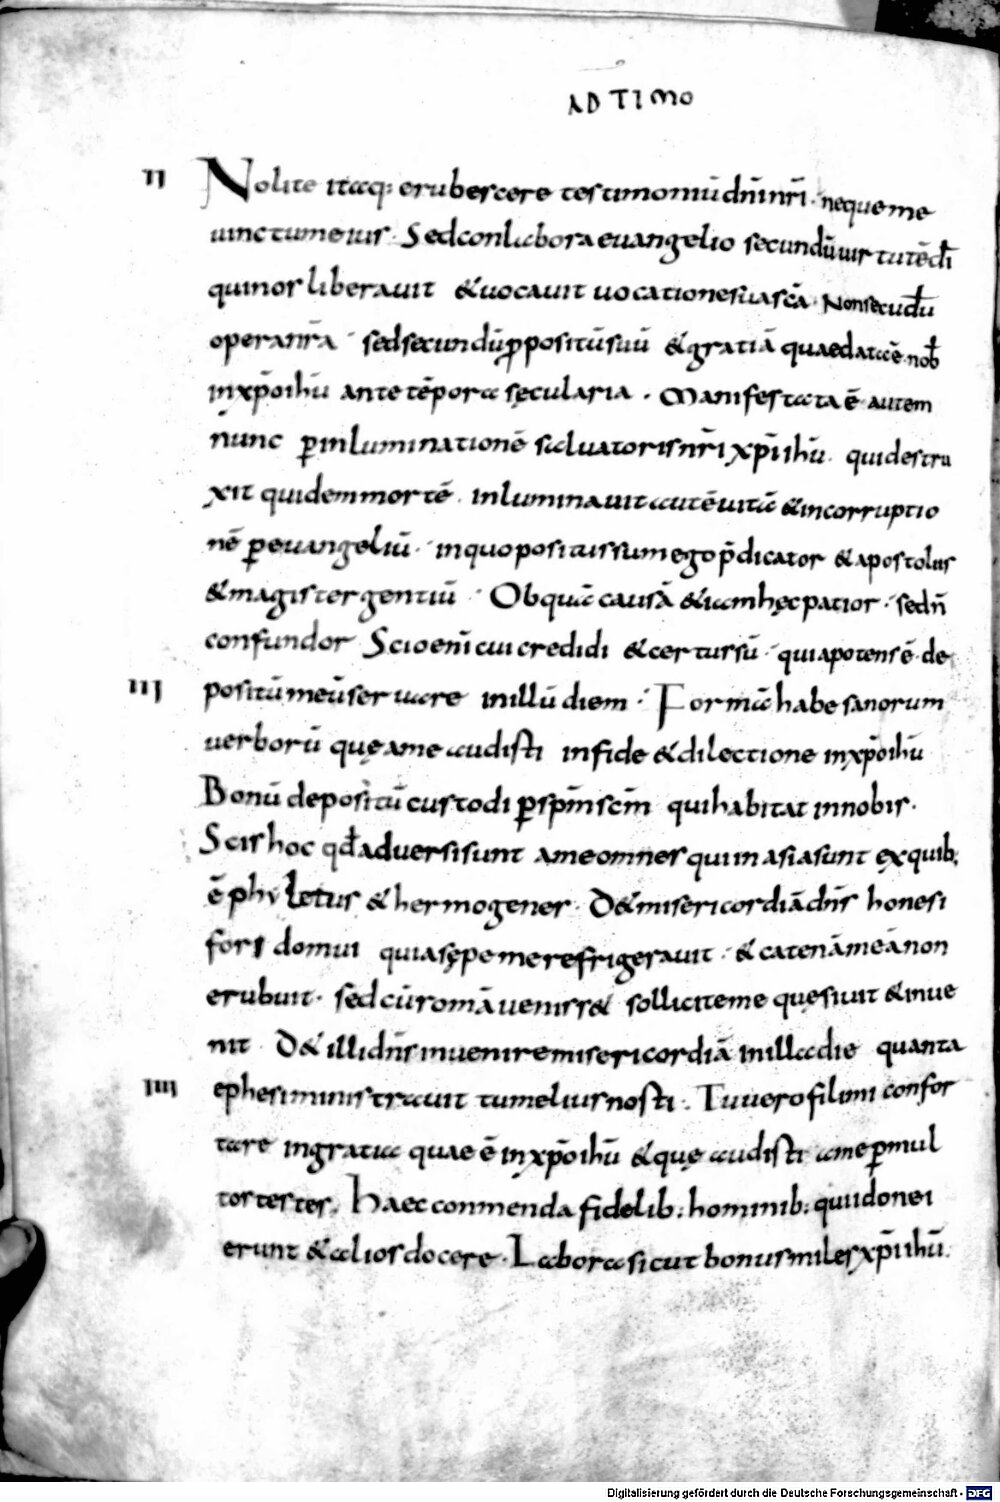 AD TIMO
II Nolite itaq; erubescere testimoniū dn̄i nr̄i · neque me
uinctum eius · Sed conlabora euangelio secundū uirtutē dī
qui nos liberauit & uocauit uocatione sua scā · Non secūdū
opera nr̄a · sed secundū ꝓpositū suū & gratiā quae data ē nob̄
in xp̄o ihū ante tēpora sęcularia · Manifestata ē autem
nunc ꝑ inluminationē saluatoris nr̄i xp̄i ihū · qui destru
xit quidem mortē · inluminauit autē uitā & incorruptio
nē ꝑ euangeliū · in quo positus sum ego p̄dicator & apostolus
& magister gentiū · Ob quā causā & iam hęc patior · sed n̄
confundor Scio eni cui credidi & certus sū · quia potens ē de
III positū meū seruare in illū diem · Formā habe sanorum
uerborū quę a me audisti in fide & dilectione in xp̄o ihū
Bonū depositū custodi ꝑ sp̄m scm̄ qui habitat in nobis ·
Scis hoc qd̄ aduersi sunt a me omnes qui in asia sunt ex quib;
ē phyletus & hermogenes · D& misericordiā dn̄s honesi
fori domui quia sępe me refrigerauit · & catenā meā non
erubuit · sed cū romā ueniss& sollicite me quęsiuit & inue
nit D& illi dn̄s inuenire misericordiā in illa die quanta
IIII ephesi ministrauit tu melius nosti · Tu uero fili mi confor
tare in gratia quae ē in xp̄o ihū & quę audisti a me ꝑ mul
tos testes · Haec conmenda fidelib; hominib; qui idonei
erunt & alios docere · Labora sicut bonus miles xp̄i ihū ·
Digitalisierung gefördert durch die Deutsche Forschungsgemeinschaft - DFG